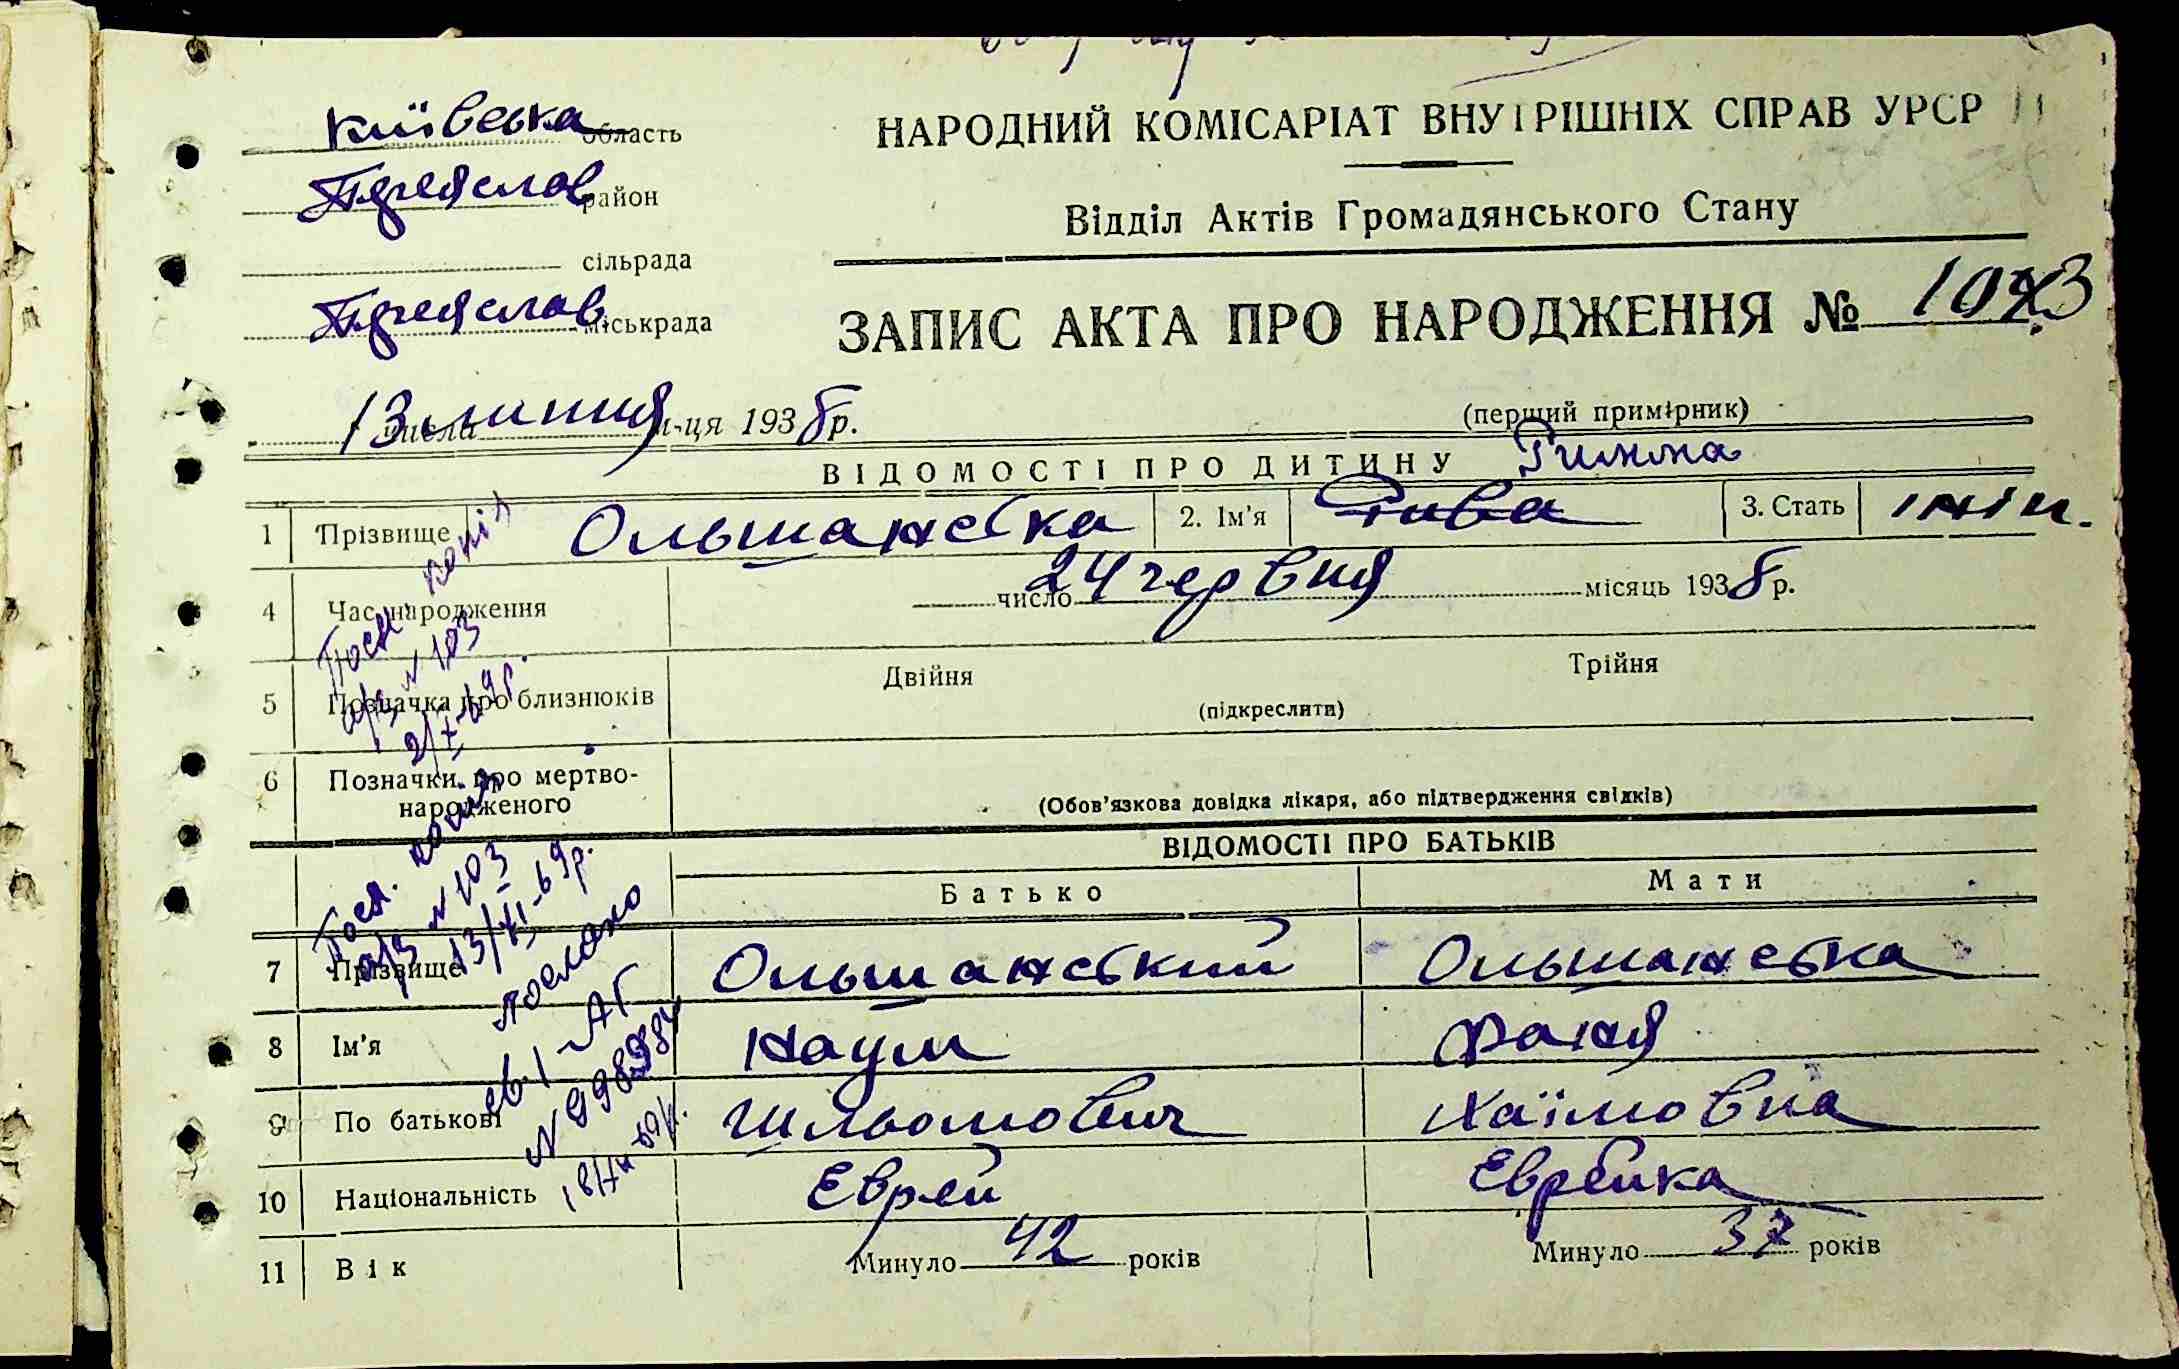 Київська область
Переяслав район
сільрада
Переяслав міськрада
НАРОДНИЙ КОМІСАРІАТ ВНУТРІШНІХ СПРАВ УРСР
Відділ Актів Громадянського Стану
ЗАПИС АКТА ПРО НАРОДЖЕННЯ №
13 числа липня м-ця 1938 р.
(перший примірник)
ВІДОМОСТІ ПРО ДИТИНУ Римма
1 Прізвище Ольшанська 2. Ім'я Рива 3. Стать жін.
4 Час народження число 24 червня місяць 1938 р.
5 Позначка про близнюків Двійня Трійня
(підкреслити)
6 Позначки про мертво-
народженого
(Обов'язкова довідка лікаря, або підтвердження свідків)
ВІДОМОСТІ ПРО БАТЬКІВ
Батько Мати
7 Прізвище Ольшанський Ольшанська
8 Ім'я Наум Фаня
9 По батькові Шльомович Хаїмовна
10 Національність Еврей Еврейка
11 Вік Минуло 42 років Минуло 37 років
копія
№ 103
копія
№ 103
послано